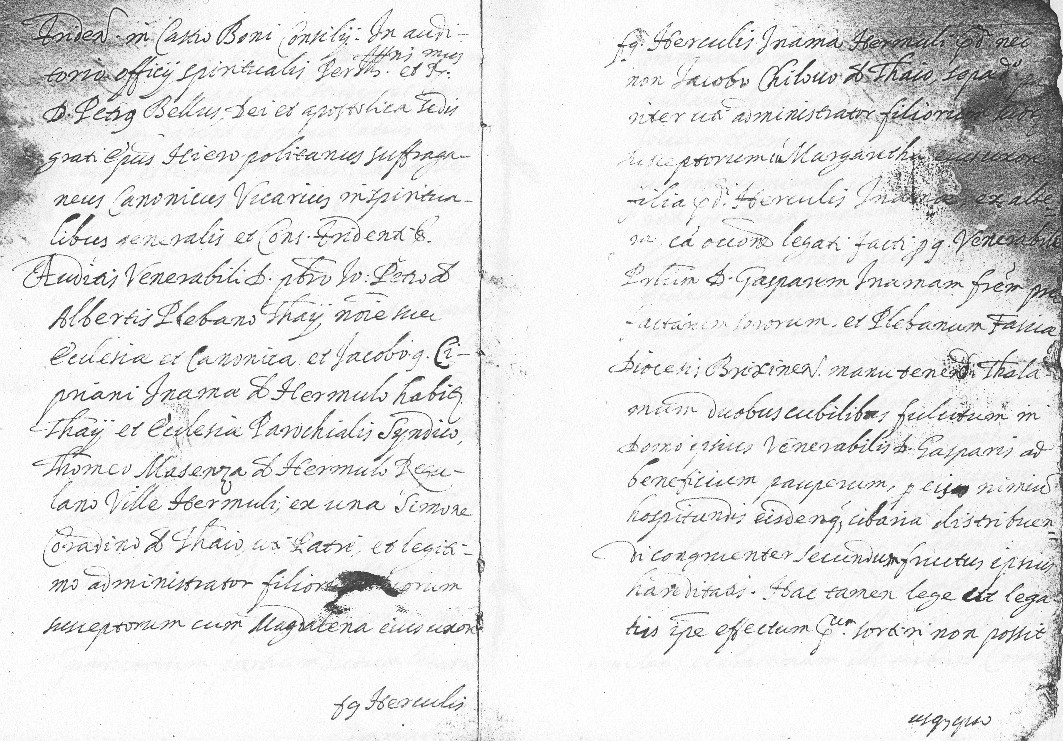 Triden. in Castro Boni Consilij: In audi-
torio officij spiritualis Perill. et R.
D. Petrq Bellus Dei et apostolica sedis
grati Epus Hieropolitanus suffraga-
neus Canonicus Vicarius in spiritua-
libus generalis et Cons. Trident &.
Auditis Venerabili D. pbro Jo. Petro d
Albertis Plebano Thaij noie suę
Ecclesia et Canonica et Jacobo q. Ci-
priani Inama d Hermulo habitq
Thaij et Ecclesia Parochialis Syndico
Thomeo Masenza d Hermulo Regu-
lano Ville Hermuli, ex una Simone
Coradino d Thaio, uti Patri, et legiti-
mo administrator filiorum
susceptorum cum Magdalena eius uxore
fq Herculis
fq. Herculis Inama Hermuli qd. nec
non Jacobo Chilovo d Thaio,
niter uti administrator filiorum
susceptorum cu Margaritha eius uxore
filia qd. Herculis Inama ex alte
ra, ca occone legati facti p q. Venerabil
Prtum D. Gasparum Inamam frem
sororum, et Plebanum Fassa
Diocesis Brixinen. manutenendi Thala
mum duobus cubilibus fulcitum in
Domo ipsius Venerabilis D. Gasparis ad
beneficium pauperum, p eius nimiu
hospitandis eisdenq cibaria distribuen
di congruenter secundum fructus ipsius
hareditatis. Hac tamen lege ut lega
tus ipe effectum sortiri non possit
usqquo